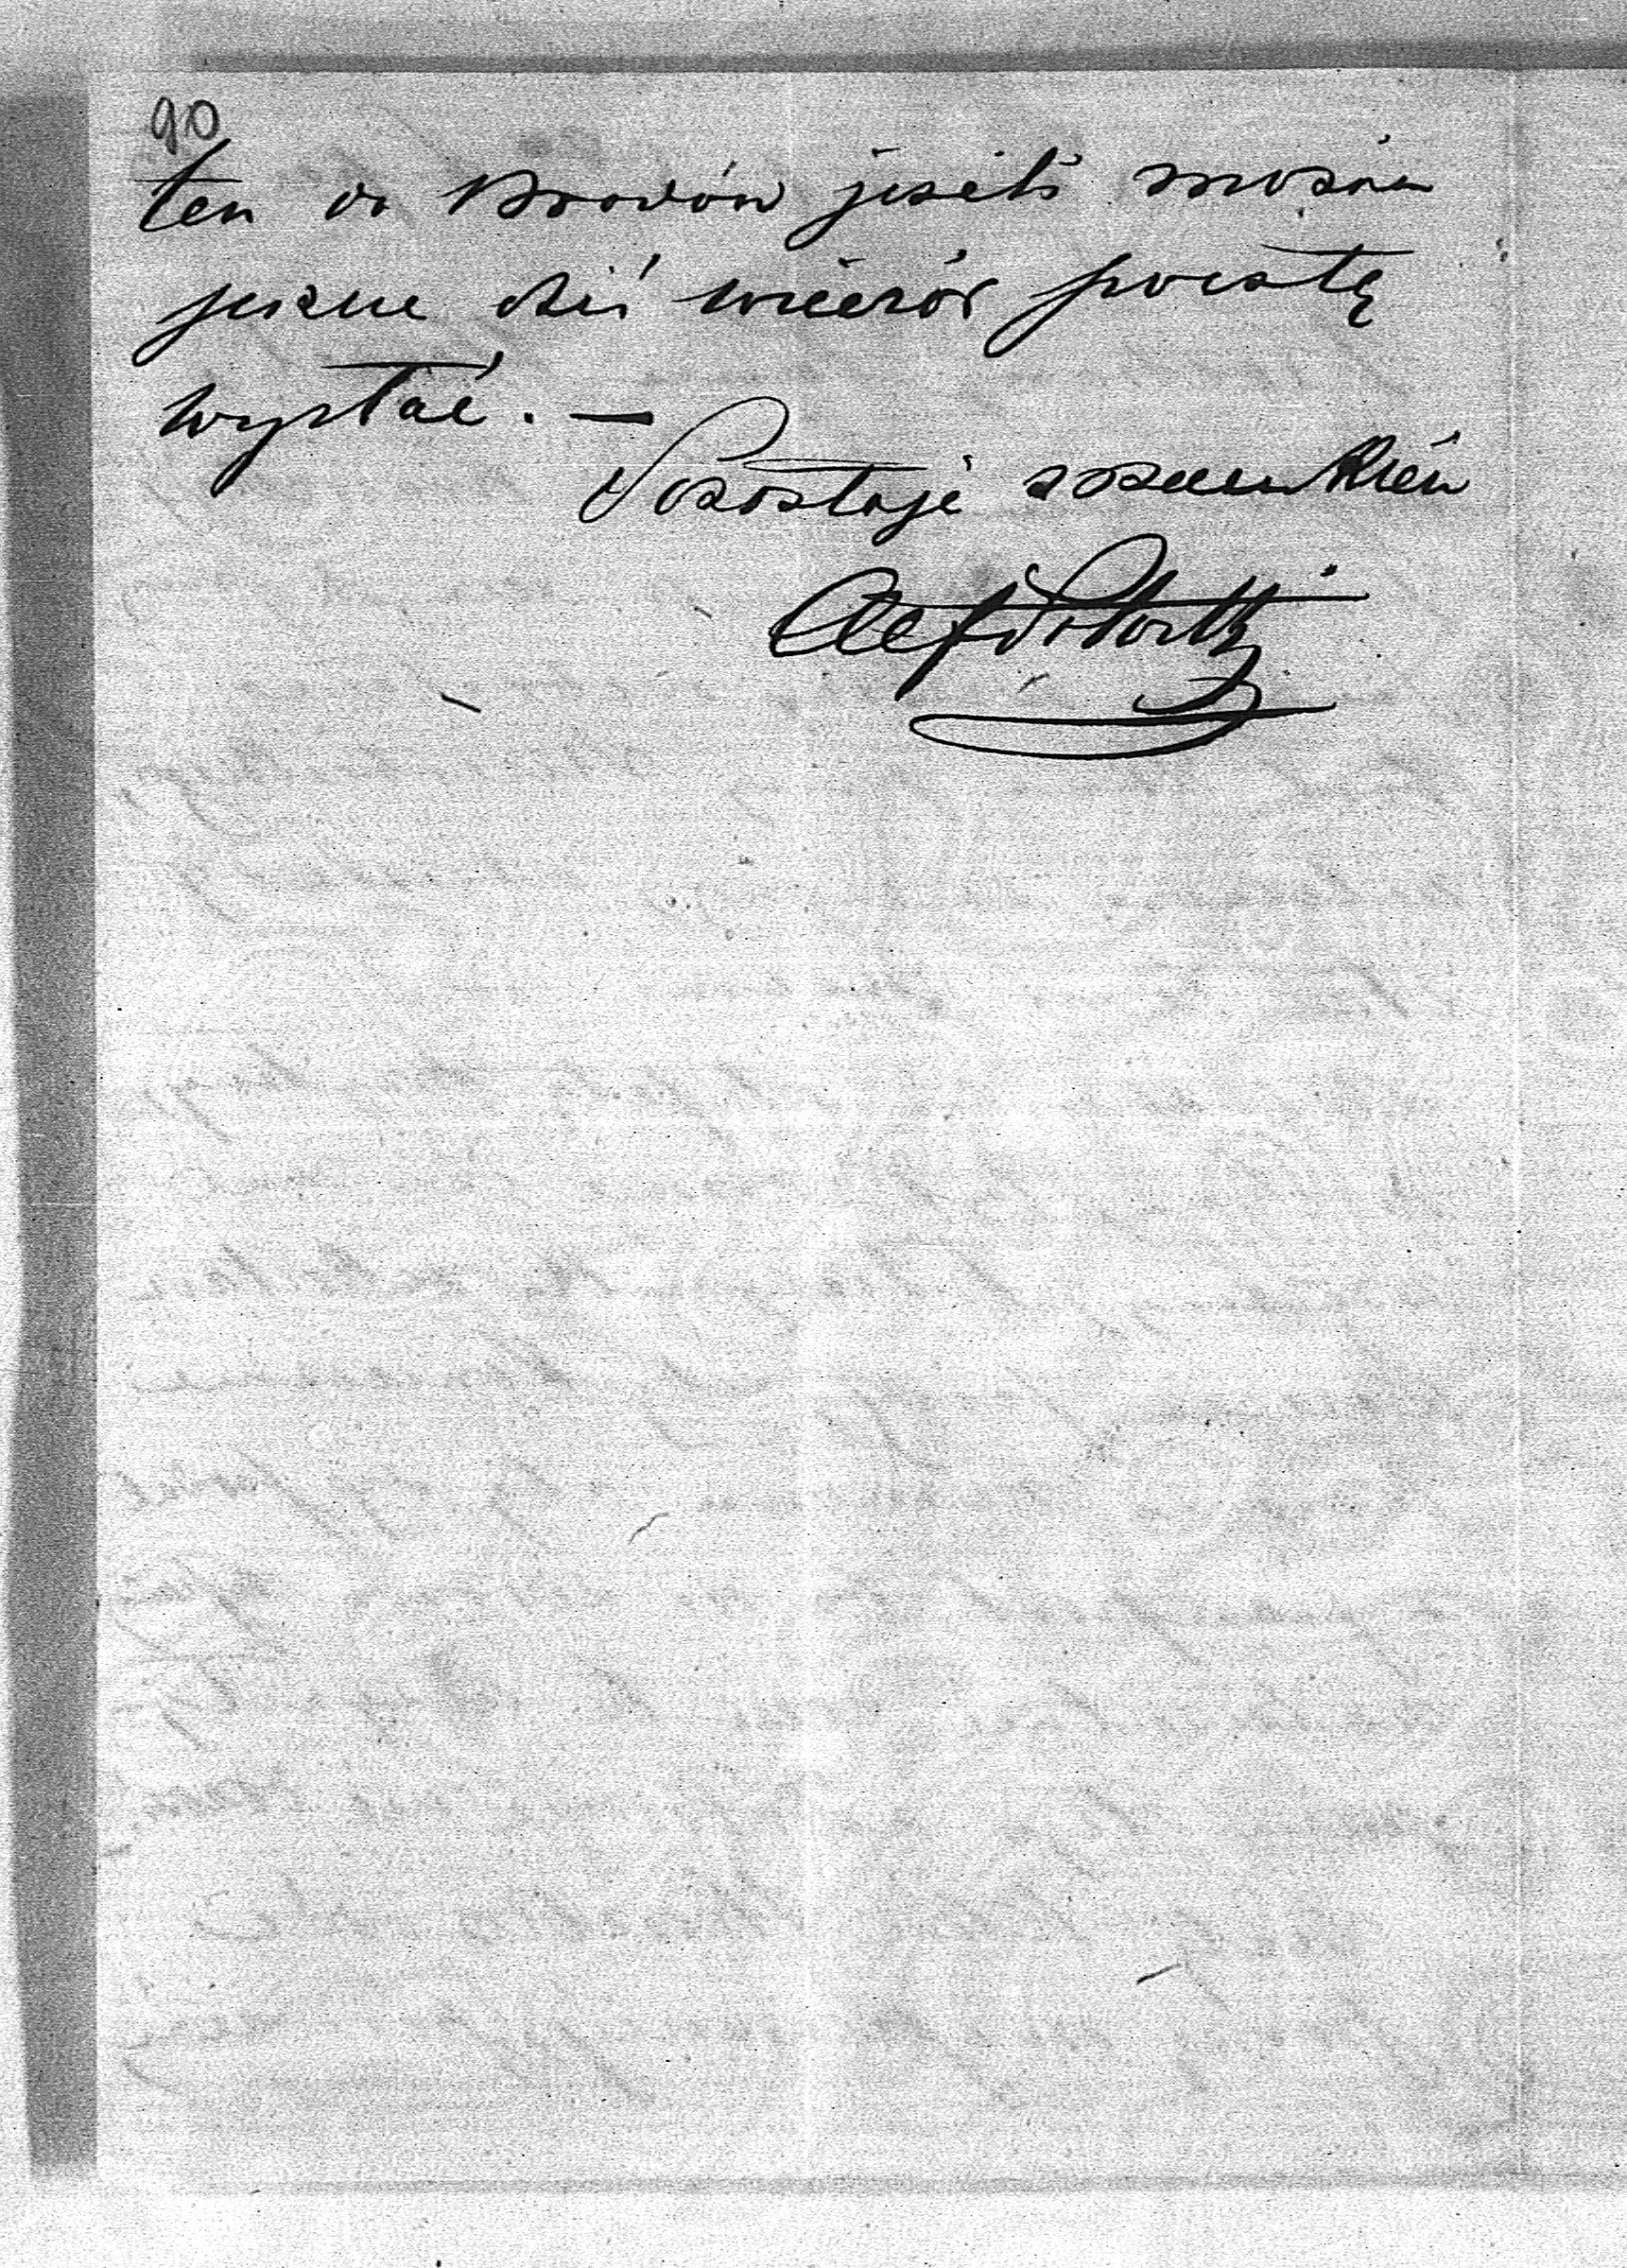 90
ten do Brodów jeżeli można
jeszcze dziś wieczór pocztą
wysłać. —
Pozostaję z szacunkiem
Alf Potocki